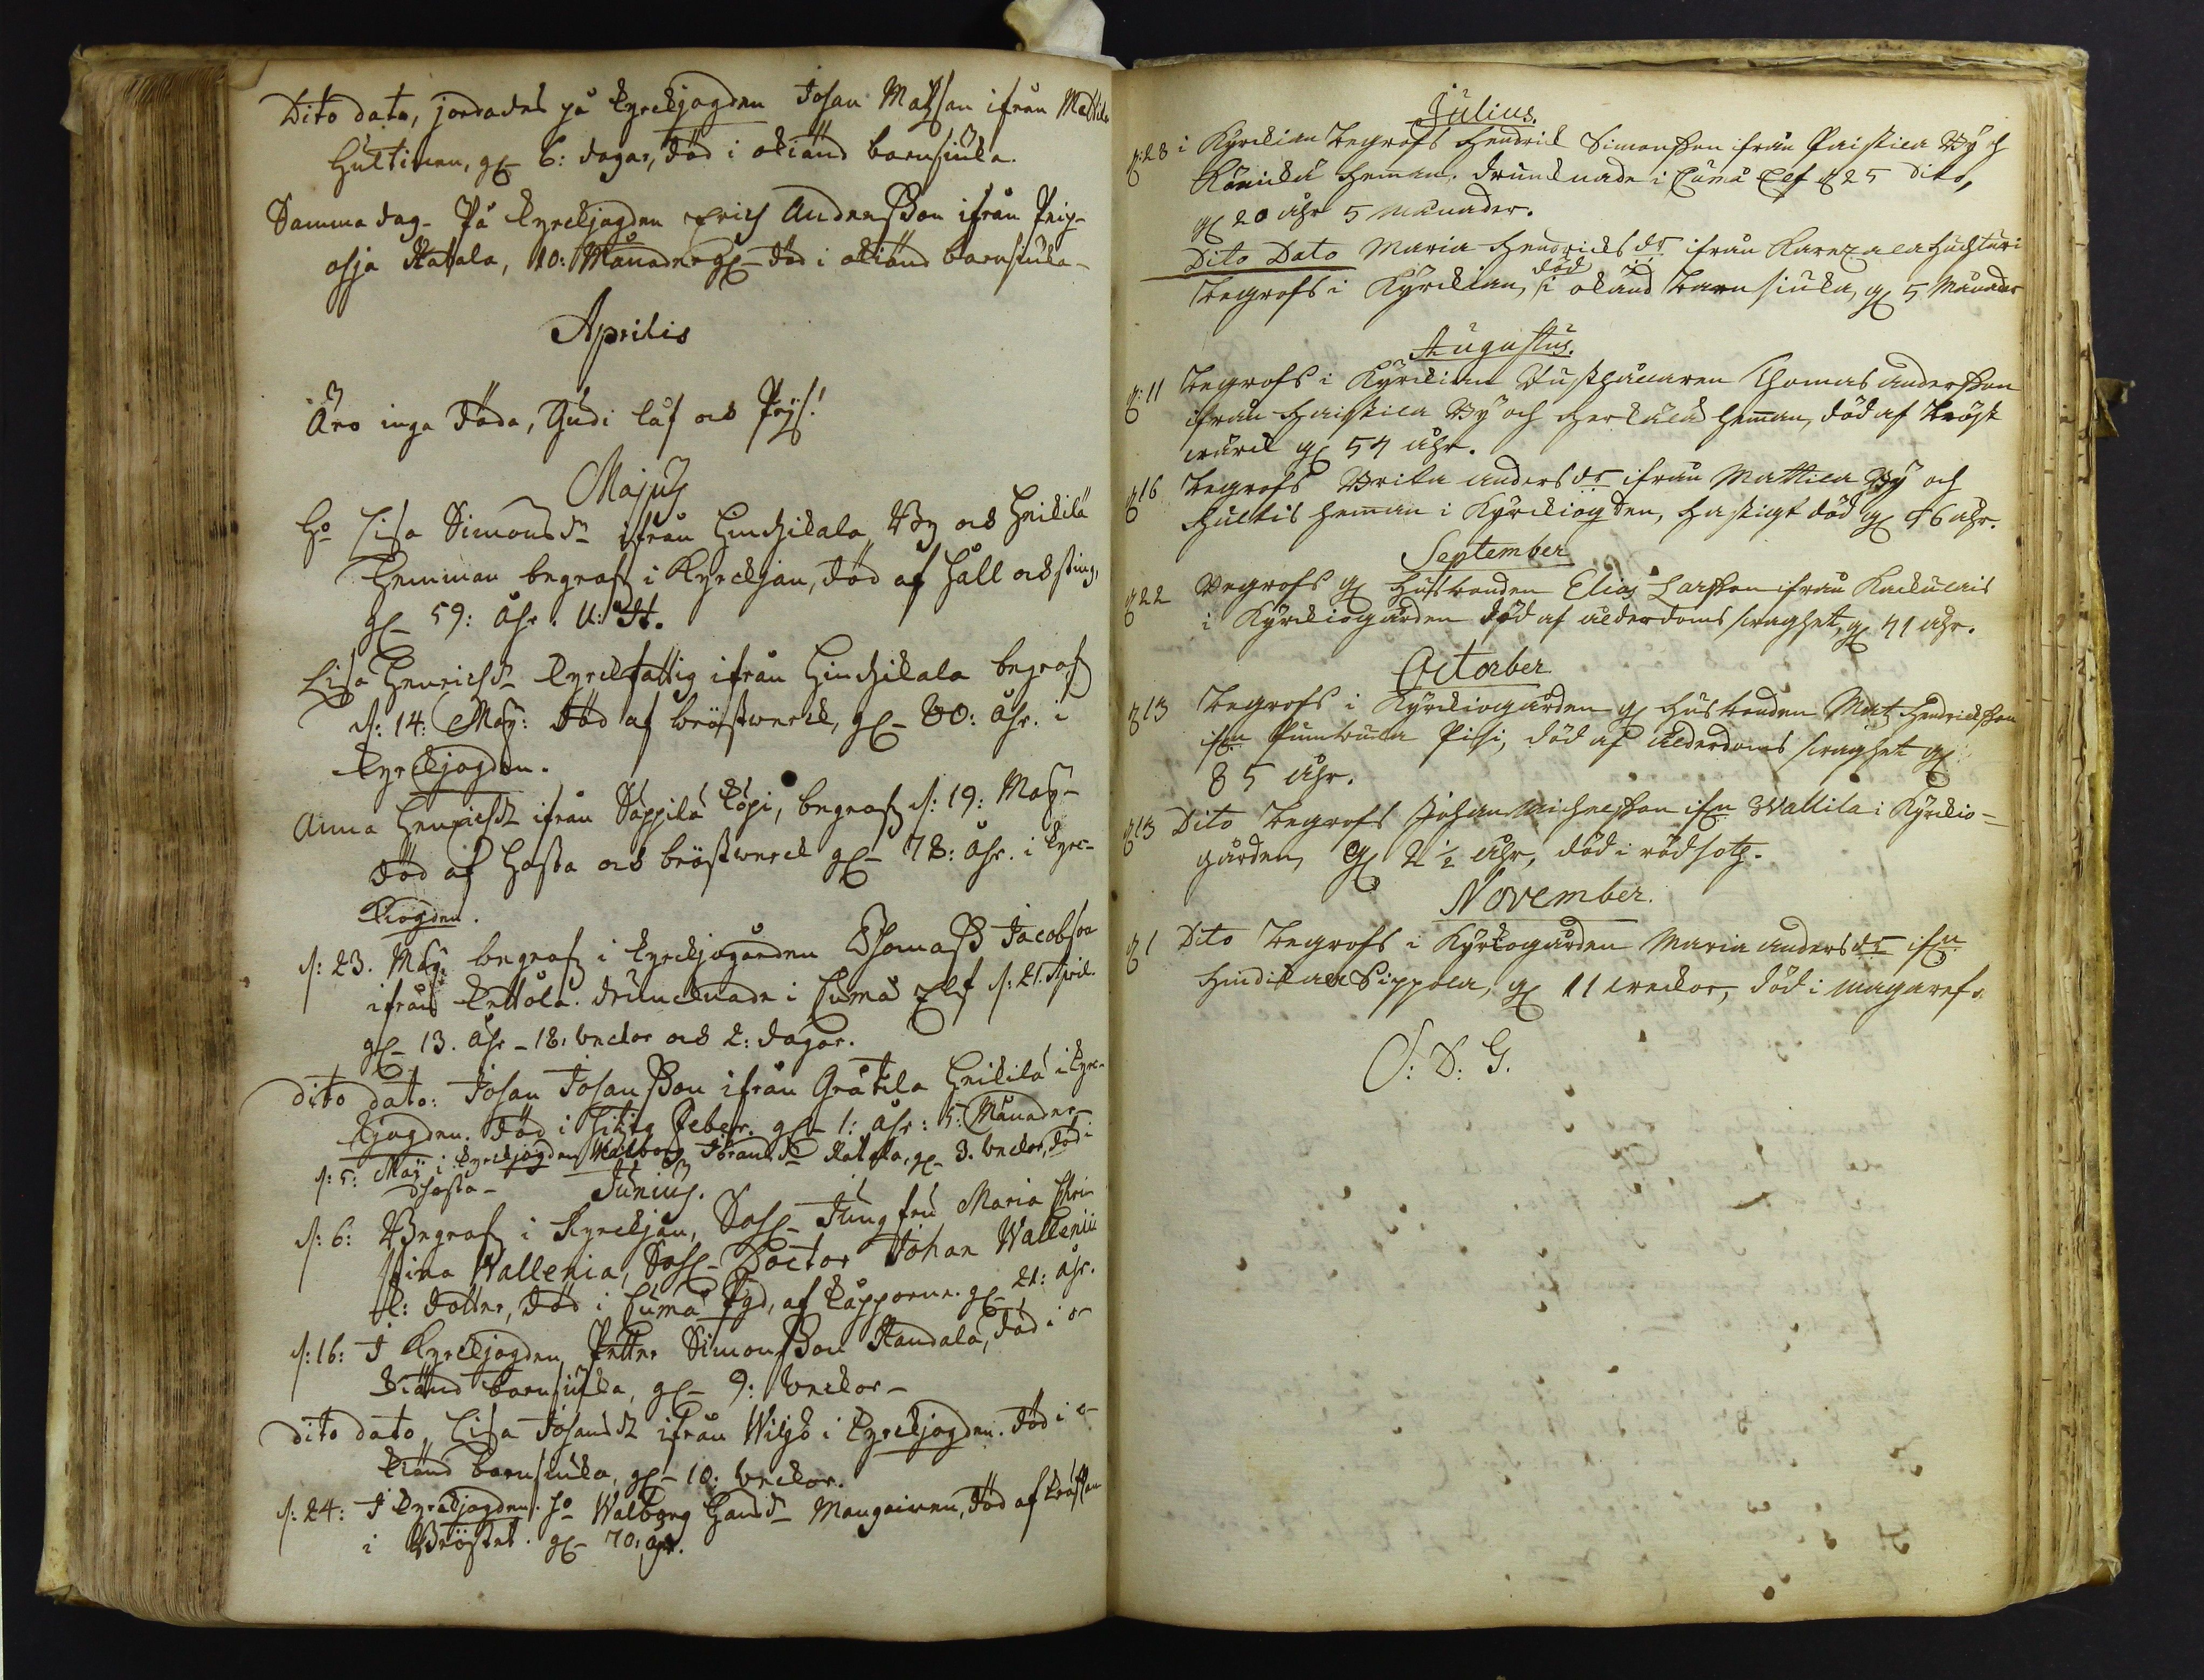 Dito dato, jordades på kyrckjogden Johan Matsson ifrån Mattila
Hultinen, gl. 6: dagar, död i okiänd barnsiuka.
Samma dag. På kyrckjogden Erich Andersson ifrån Peip-
ohja Katala, 10: Månader gl. död i okiänd barnsiuka.
Aprilis
Äro inga döda, Gudi låf och Prijs!
Majus
H:o Lisa Simonsdr ifrån Hinchikala By och Heikilä
Hemman begrafs i Kyrckjan, död af håll och sting,
gl. 59: åhr.
Lisa Henrichsdr kyrckfattig ifrån Hinchikala begrafs
d: 14: Maij: död af bröstwerck, gl. 80: åhr. i
kyrckjogden.
Anna Henrichsdr ifrån Säppilä Töpi, begrafs d: 19: Maij
död af hosta och bröstwerck gl. 78: åhr. i kyrc-
kiogden.
d: 23. Maij begrafs i kyrckjogården Thomass Jacobson
ifrån Kettola. drunknade i Cumå Elf d: 21. April.
gl. 13. åhr - 18: weckor och 2: dagar.
dito dato: Johan Johansson ifrån Gråtila Heikilä i kyrc-
kjogden. död i hitzig feber. gl. 1: åhr: 5: Månader
d: 5: Maij i kyrckjogden Walborg Kalala, gl. 3. weckor, död i
hosta.
Junius.
d: 6: Begrafs i Kyrckjan, Sahl. Jungfru Maria Chri-
stina Wallenia, Sahl. Doctor Johan Wallenii
k: dotter, död i Cumå, af kåpporne. gl. 21: åhr.
d: 16: I Kyrckjogden, Petter Simonsson Kandala, död i o-
kiänd barnsiuka, gl. 9: weckor
dito dato, Lisa Johansdr ifrån Wiljo i kyrckjogden. död i o-
kiänd barnsiuka, gl. 10: weckor.
d: 24: I kyrckjogden. H:o Walborg Hansdr Mangoinen, död af
i Bröstet. gl. 70: åhr.
Julius.
d: 28 i Kyrckian begrofs Hendrick Simonsson ifrån Paistila By och
heman. drunknade i Cumå Elf d 25 dito,
gl 20 åhr 5 månader.
Dito Dato Maria Hendrichsdr ifrån Karetzala Huchturi
död
begrofs i Kyrckian, i okänd barnsiuka, gl 5 Månader
Augustus.
d: 11 begrofs i Kyrckian Husthållaren Thomas Andersson
ifrån Haistila By och Herkälä heman, död af bröst
wärck gl 54 åhr.
d 16 begrofs Brita Andersdr ifrån Mattila By och
Hultis heman i Kyrckiogden, hastigt död gl 56 åhr.
September
d 22 Begrofs gl Husbonden Elias Larsson ifrån Kuckulais
i Kyrckiogården död af ålderdoms swaghet, gl 71 åhr.
October
d 13 begrofs i Kyrckiogården gl husbonden Matz Hendricksson
ifrn Pumbula Pisi, död af ålderdoms swaghet gl
85 åhr.
d 13 Dito begrofs Johan Michelsson ifrn Wallila i Kyrckio-
gården, gl 2 1/2 åhr, död i rödsoth.
November.
d 1 Dito begrofs i Kyrkogården Maria Andersdr ifrn
Hindikala Sippola, gl 11 weckor, död i magaref.
S: D: G.